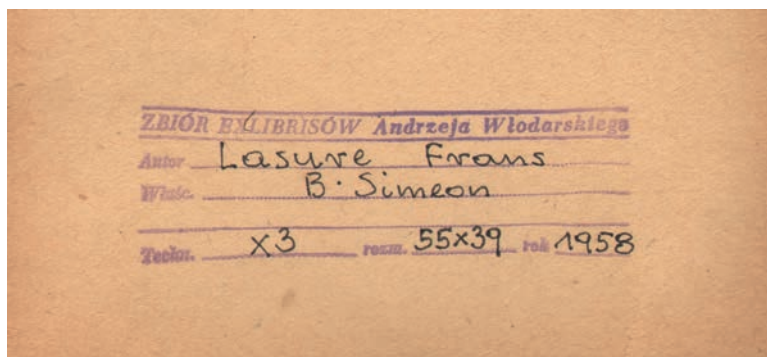 ZBIÓR EXLIBRISÓW Andrzeja Włodarskiego
Autor Lasure Frans
Właśc. B. Simeon
Techn. X3 rozm. 55x39 rok 1958